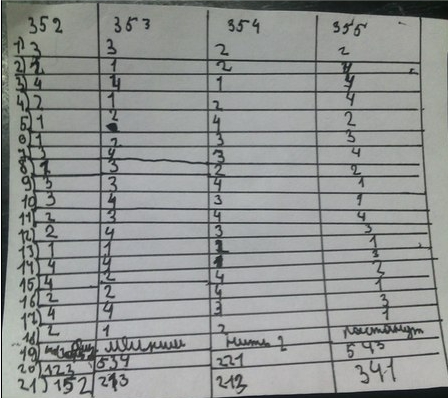 352 353 354 355
1) 3 3 2 2
2) 1 2 4
3) 4 4 1 4
4) 2 1 2 4
5) 1 2 4 2
6) 1 3 3
7) 3 3 4
8) 3 2 2
9) 3 3 4 1
10) 3 4 3 1
11) 2 3 4 4
12) 2 4 3 3
13) 1 1 1
14) 4 4 3
15) 4 2 4 2
16) 2 2 4 3
17) 4 4 3 1
18) 2 1 2
19) нить растянут
20) 123 534 221 543
21) 152 213 213 341